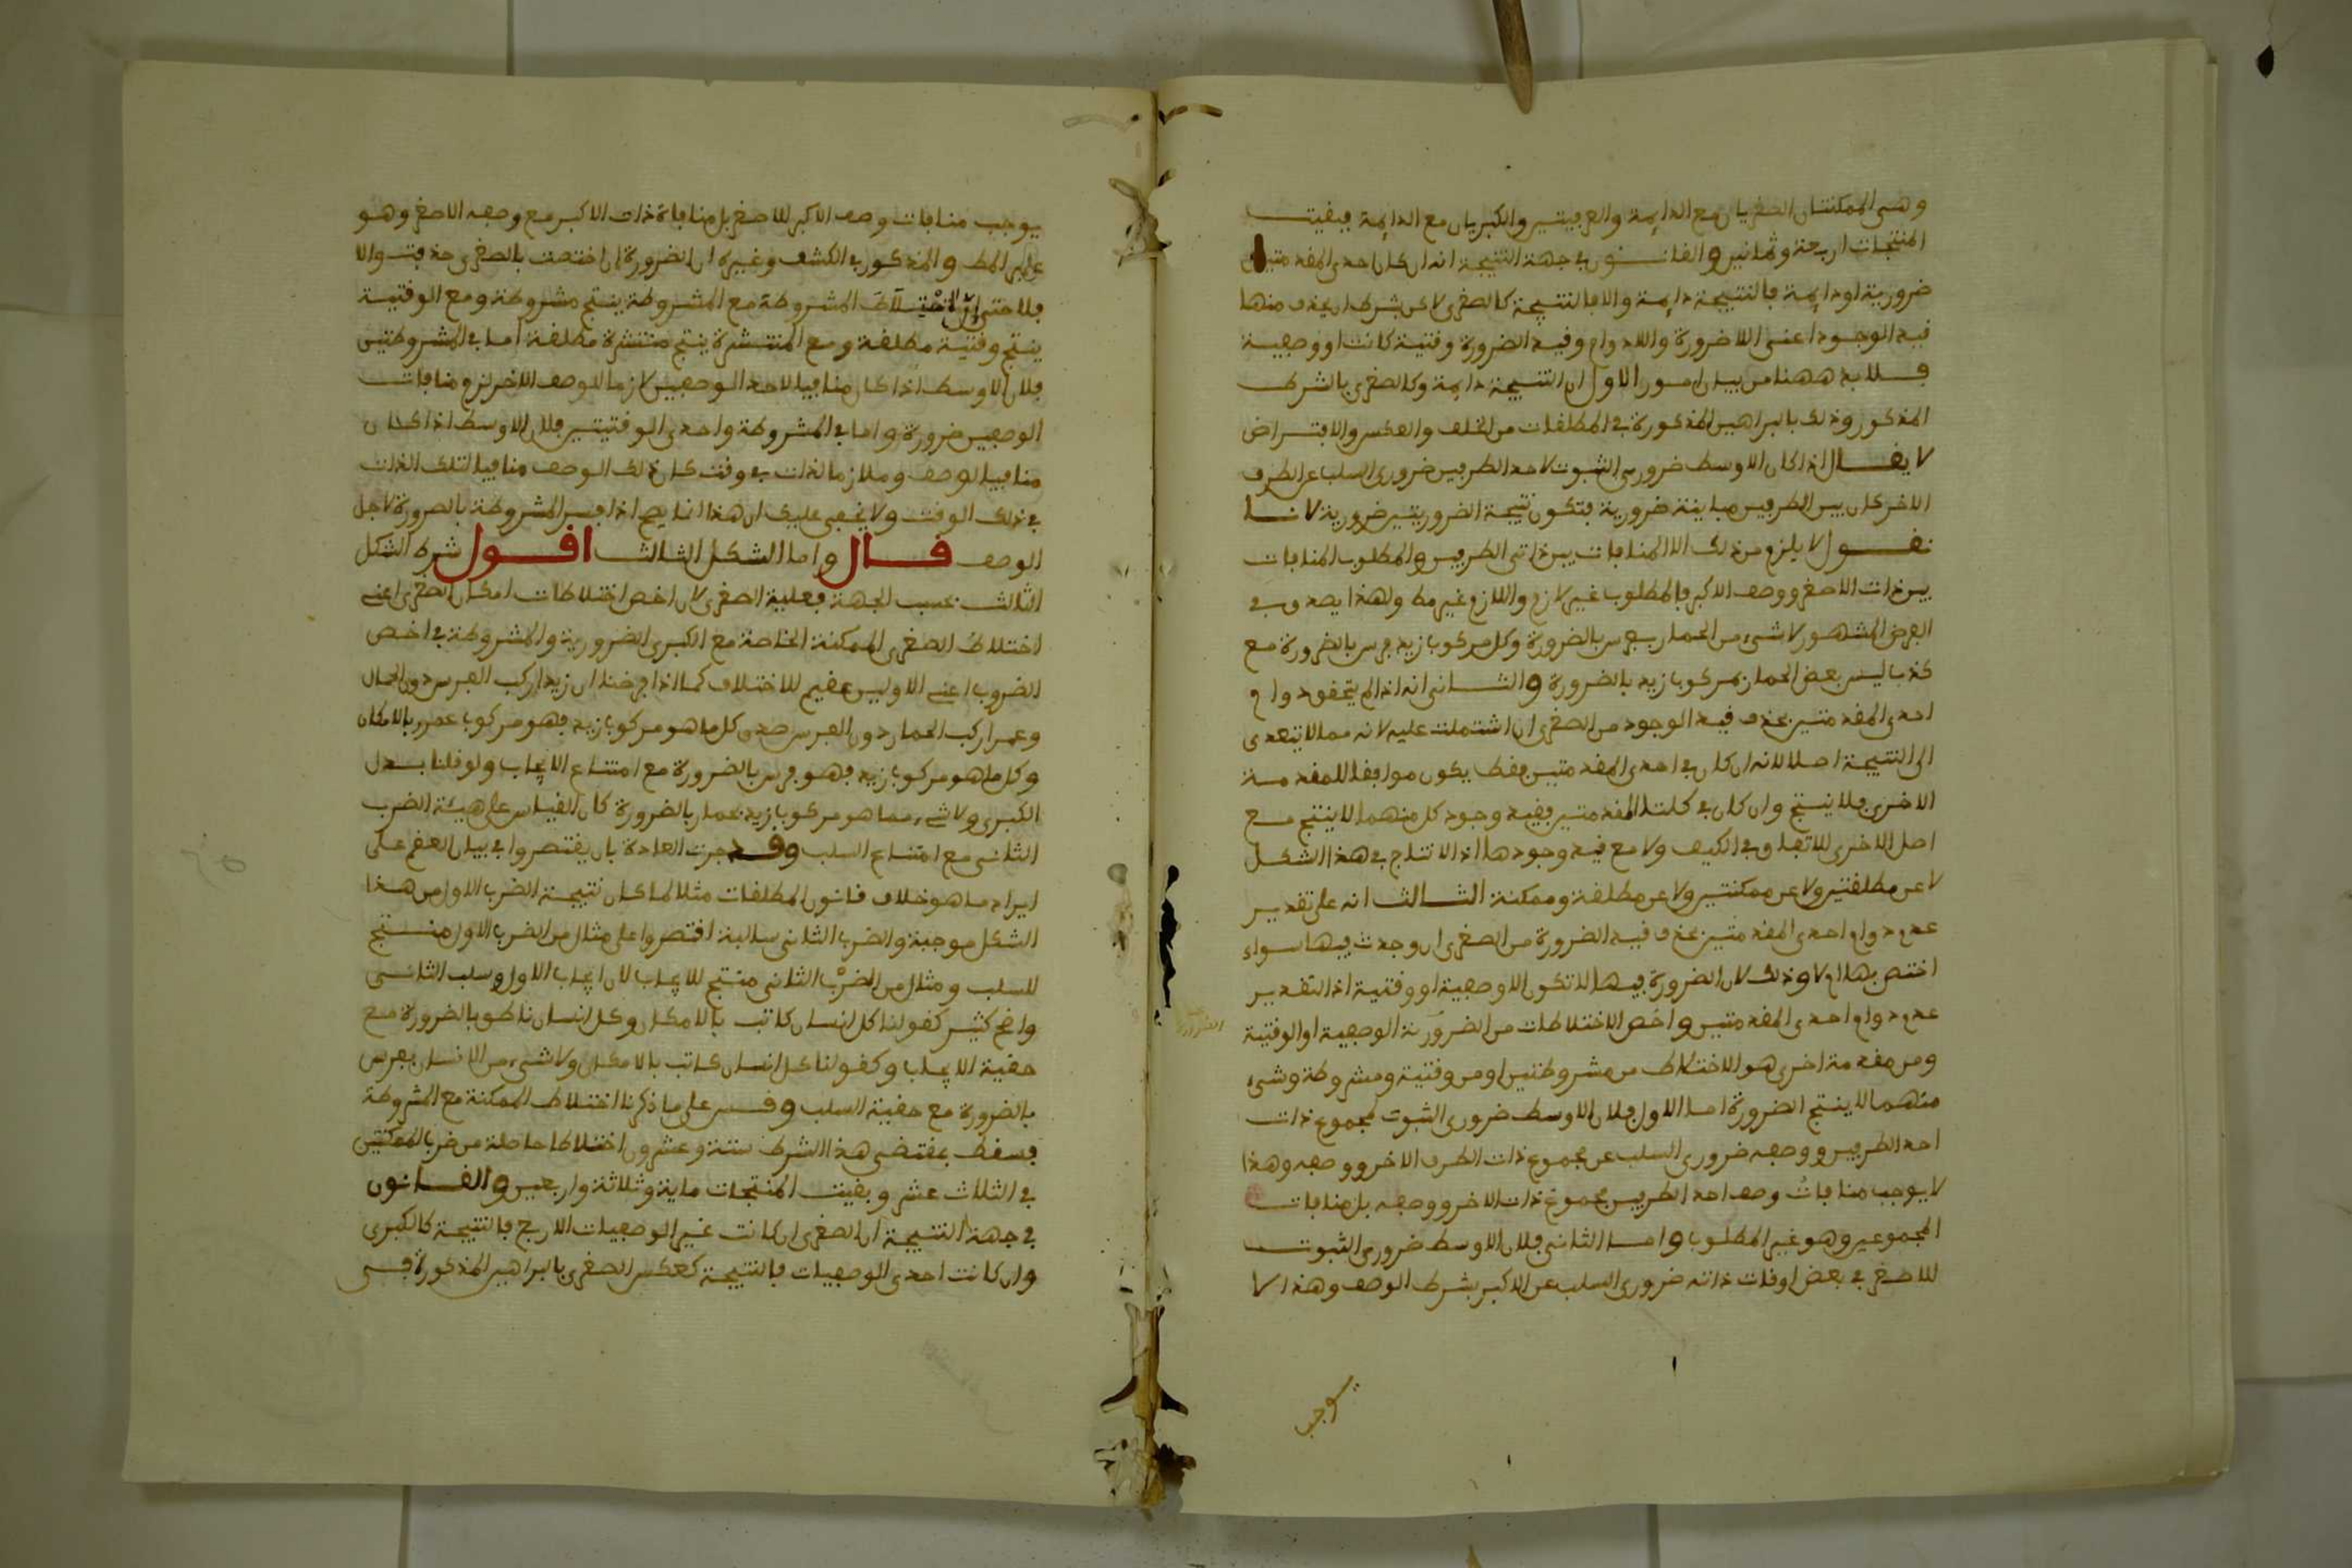 وهى الممكنتان الصغريان مع الدايمة والعرفيتين والكبريان مع الدايمة فبقيت
المنتجات اربعة وثمانين والقانون في جهة النتيجة انه ان كان احدى المقدمتين
ضرورية او دايمة فالنتيجة دايمة والا فالنتيجة كالصغرى لاكن بشرط ان يحذف منها
قيد الوجود اعنى اللاضرورة واللادوام وقيد الضرورة وقتية كانت او وصفية
فلا بد ههنا من بيان امور الاول ان النتيجة دايمة وكالصغرى بالشرط
المذكور وذلك بالبراهين المذكورة في المطلقات من الخلف والعكس والافتراض
لا يقال اذا كان الاوسط ضروري الثبوت لاحد الطرفين ضروري السلب عن الطرف
الاخر كان بين الطرفين مباينة ضرورية فتكون نتيجة الضروريتين ضرورية لانا
نقول لا يلزم من ذلك الا المنافات بين ذاتى الطرفين والمطلوب المنافات
بين ذات الاصغر ووصف الاكبر فالمطلوب غير لازم واللازم غير مط ولهذا يصدق في
الفرض المشهور لا شىء من الحمار بفرس بالضرورة وكل مركوب زيد فرس بالضرورة مع
كذب ليس بعض الحمار بمركوب زيد بالضرورة والثانى انه اذا لم يتحقق دوام
احدى المقدمتين يحذف قيد الوجود من الصغرى ان اشتملت عليه لانه مما لا يتعدى
الى النتيجة اصلا لانه ان كان في احدى المقدمتين فقط يكون موافقا للمقدمة
الاخرى فلا ينتج وان كان في كلتا المقدمتين فقيد وجود كل منهما لا ينتج مع
اصل الاخرى للاتفاق في الكيف ولا مع قيد وجودها اذ لا انتاج في هذا الشكل
لا عن مطلقتين ولا عن ممكنتين ولا عن مطلقة وممكنة الثالث انه على تقدير
عدم دوام احدى المقدمتين يحذف قيد الضرورة من الصغرى ان وجدت فيها سواء
اختص بها ام لا وذلك لان الضرورة فيها لا تكون الا وصفية او وقتية اذ التقدير
عدم دوام احدى المقدمتين واخص الاختلاطات من الضرورية الوصفية او الوقتية
ومن مقدمة اخرى هو الاختلاط من مشروطتين او من وقتية ومشروطة وشىء
منهما لا ينتج الضرورة اما الاول فلان الاوسط ضروري الثبوت لمجموع ذات
احد الطرفين ووصفه ضروري السلب عن مجموع ذات الطرف الاخر ووصفه وهذا
لا يوجب منافات وصف احد الطرفين لمجموع ذات الاخر ووصفه بل منافات
المجموعين وهو غير المطلوب واما الثانى فلان الاوسط ضروري الثبوت
للاصغر في بعض اوقات ذاته ضروري السلب عن الاكبر بشرط الوصف وهذا لا
يوجب
يوجب منافات وصف الاكبر للاصغر بل منافاة ذات الاكبر مع وصفه الاصغر وهو
غير المط والمذكور في الكشف وغيره ان الضرورة ان اختصت بالصغرى حذفت والا
فلا حتى ان اختلاط المشروطة مع المشروطة ينتج مشروطة ومع الوقتية
ينتج وقتية مطلقة ومع المنتشرة ينتج منتشرة مطلقة اما في المشروطتين
فلان الاوسط اذا كان منافيا لاحد الوصفين لازما للوصف الاخر لزم منافات
الوصفين ضرورة واما في المشروطة واحدى الوقتيتين فلان الاوسط اذا كان
منافيا لوصف وملازما لذات في وقت كان ذلك الوصف منافيا لتلك الذات
في ذلك الوقت ولا يخفى عليك ان هذا انما يصح اذا فسر المشروطة بالضرورة لاجل
الوصف قال واما الشكل الثالث اقول شرط الشكل
الثالث بحسب الجهة فعلية الصغرى لان اخص اختلاطات امكان الصغرى اعنى
اختلاط الصغرى الممكنة الخاصة مع الكبرى الضرورية والمشروطة في اخص
الضروب اعنى الاولين عقيم للاختلاف كما اذا فرضنا ان زيدا ركب الفرس دون الحمار
وعمرا ركب الحمار دون الفرس صدق كل ما هو مركوب زيد فهو مركوب عمرو بالامكان
وكل ما هو مركوب زيد فهو فرس بالضرورة مع امتناع الايجاب ولو قلنا بدل
الكبرى ولا شىء مما هو مركوب زيد بحمار بالضرورة كان القياس على هيئة الضرب
الثانى مع امتناع السلب وقد جرت العادة بان يقتصروا في بيان العقم على
ايراد ما هو خلاف قانون المطلقات مثلا لما كان نتيجة الضرب الاول من هذا
الشكل موجبة والضرب الثانى سالبة اقتصروا على مثال من الضرب الاول منتج
للسلب ومثال من الضرب الثانى منتج للايجاب لان ايجاب الاول وسلب الثانى
واضح كثير كقولنا كل انسان كاتب بالامكان وكل انسان ناطق بالضرورة مع
حقية الايجاب وكقولنا كل انسان كاتب بالامكان ولا شىء من الانسان بفرس
بالضرورة مع حقية السلب وقس على ما ذكرنا اختلاط الممكنة مع المشروطة
فسقط بمقتضى هذا الشرط ستة وعشرون اختلاطا حاصلة من ضرب الممكنتين
في الثلاث عشر وبقيت المنتجات ماية وثلاثة واربعين والقانون
في جهة النتيجة ان الصغرى ان كانت غير الوصفيات الاربع فالنتيجة كالكبرى
وان كانت احدى الوصفيات فالنتيجة كعكس الصغرى بالبراهين المذكورة في